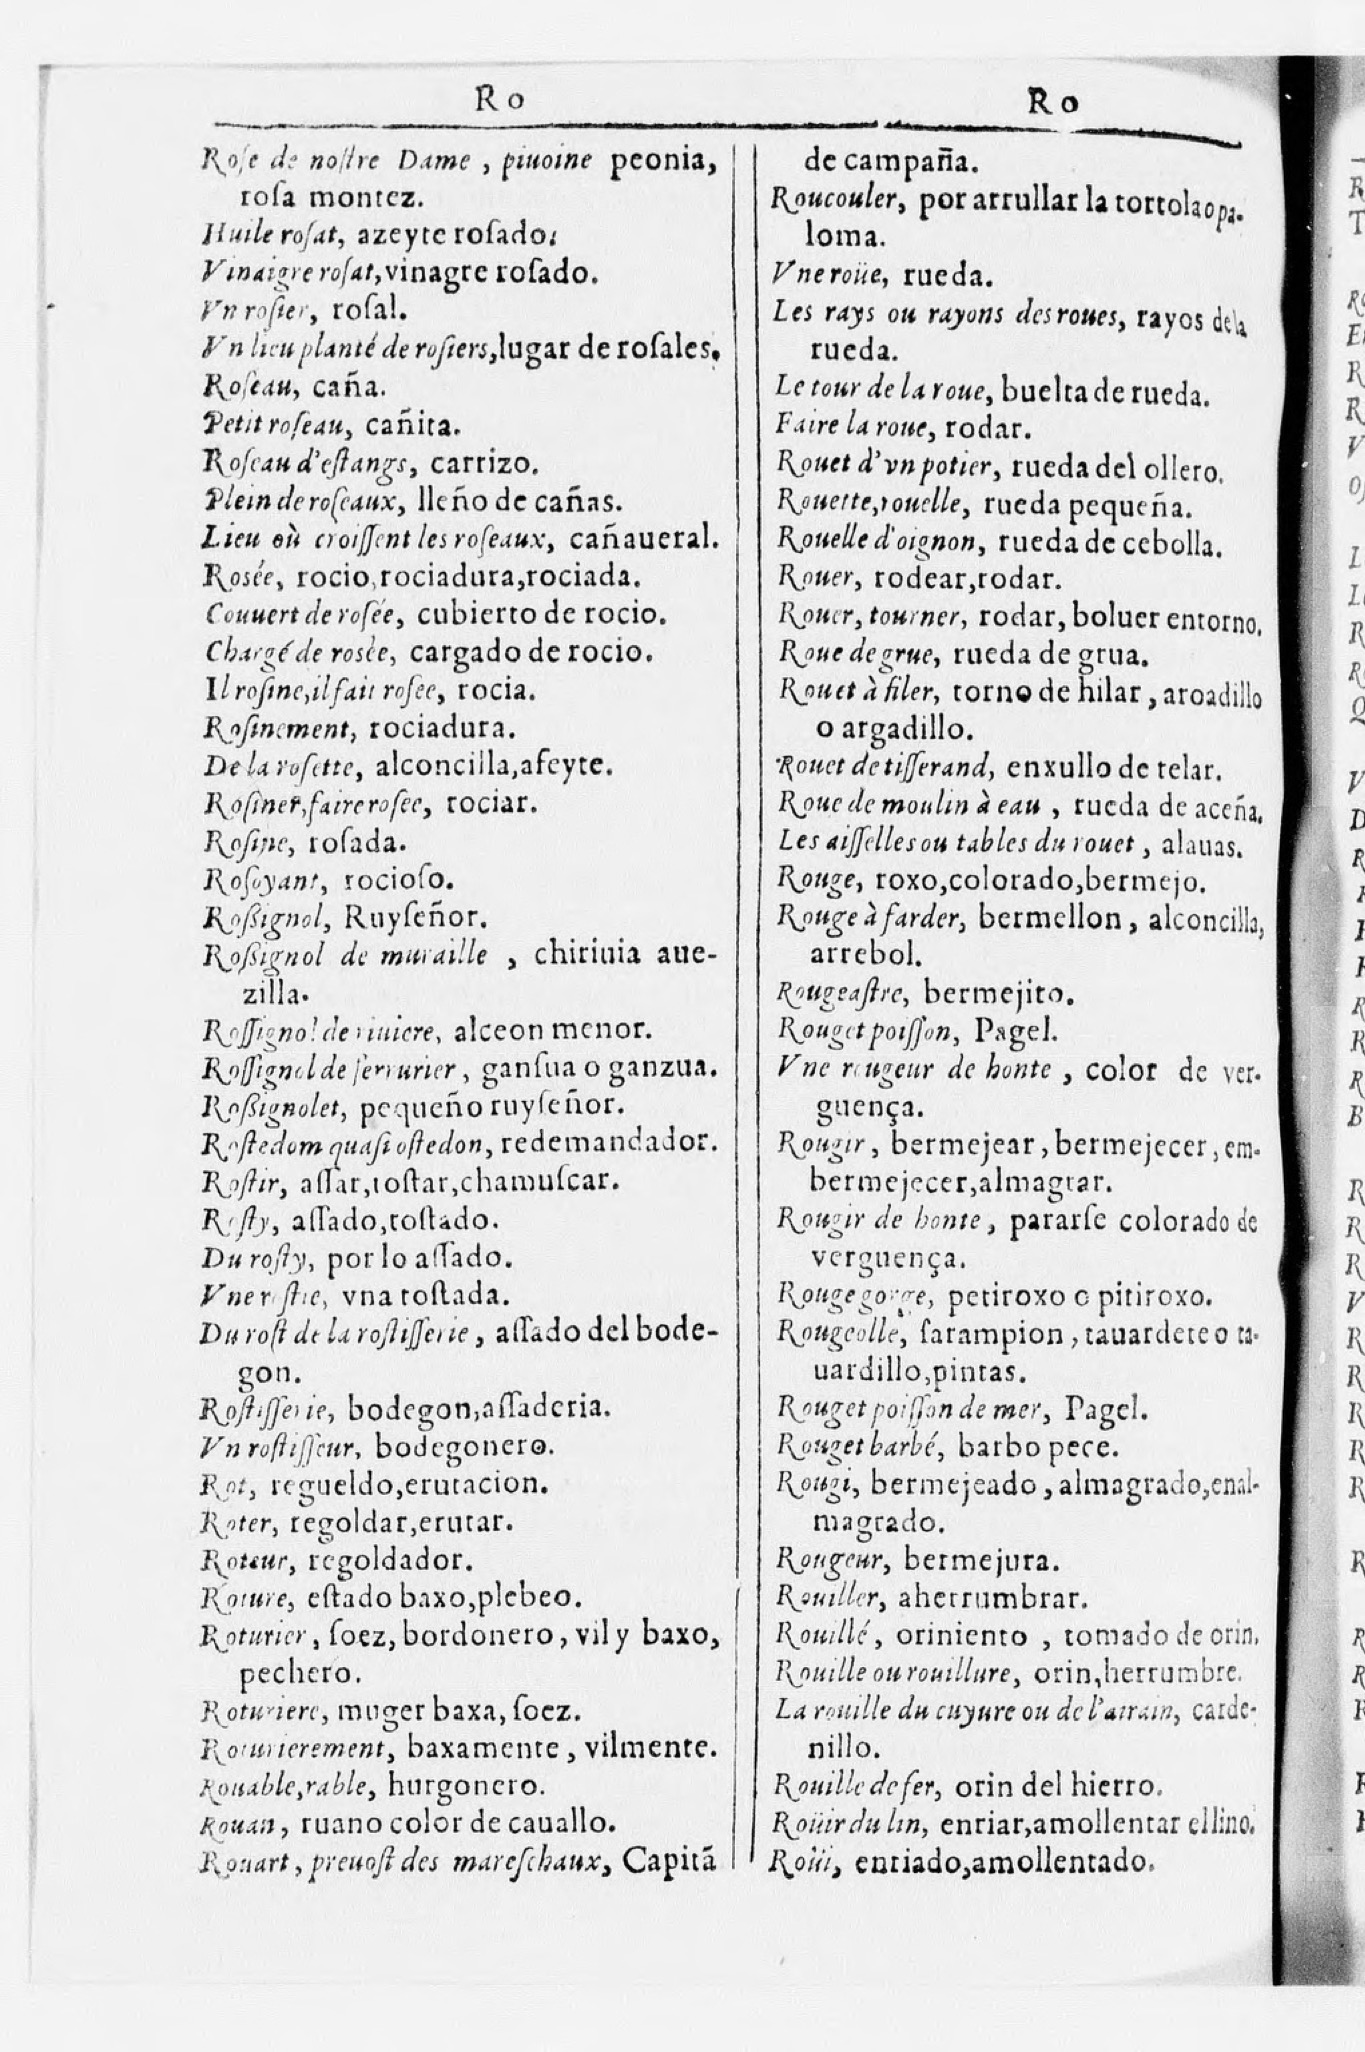 Ro
Roſe de noſtre Dame , piuoine peonia,
roſa montez.
Huile roſat, azeyte roſado:
Vinaigre roſat, vinagre roſado.
Vn roſier, roſal.
Vn lieu planté de roſiers, lugar de roſales.
Roſeau, caña.
Petit roſeau, cañita.
Roſeau d'eſtangs, carrizo.
Plein de roſeaux, lleño de cañas.
Lieu où croiſſent les roſeaux, cañaueral.
Rosée, rocio, rociadura, rociada.
Couuert de roſée, cubierto de rocio.
Chargé de rosèe, cargado de rocio.
Il roſine, il fait roſee, rocia.
Roſinement, rociadura.
De la roſette, alconcilla, afeyte.
Roſiner, faire roſee, rociar.
Roſine, roſada.
Roſoyant, rocioſo.
Roßignol, Ruyſeñor.
Roßignol de muraille , chiriuia aue-
zilla.
Roſſignol de riuiere, alceon menor.
Roſſignol de ſerrurier, ganſua o ganzua.
Roßignolet, pequeño ruyſeñor.
Roſtedom quaſi oſtedon, redemandador.
Roſtir, aſſar, toſtar, chamuſcar.
Roſty, aſſado, toſtado.
Du roſty, por lo aſſado.
Vne roſtie, vna toſtada.
Du roſt de la roſtiſſerie, aſſado del bode-
gon.
Roſtiſſerie, bodegon, aſſaderia.
Vn roſtiſſeur, bodegonero.
Rot, regueldo, erutacion.
Roter, regoldar, erutar.
Roteur, regoldador.
Roture, eſtado baxo, plebeo.
Roturier, ſoez, bordonero, vil y baxo,
pechero.
Roturiere, muger baxa, ſoez.
Roturierement, baxamente, vilmente.
Rouable, rable, hurgonero.
Rouan, ruano color de cauallo.
Rouart, preuoſt des mareſchaux, Capitã
Ro
de campaña.
Roucouler, por arrullar la tortola o pa-
loma.
Vne roüe, rueda.
Les rays ou rayons des roues, rayos de la
rueda.
Le tour de la roue, buelta de rueda.
Faire la roue, rodar.
Rouet d'vn potier, rueda del ollero.
Rouette, rouelle, rueda pequeña.
Rouelle d'oignon, rueda de cebolla.
Rouer, rodear, rodar.
Rouer, tourner, rodar, boluer entorno.
Roue de grue, rueda de grua.
Rouet à filer, torno de hilar, aroadillo
o argadillo.
Rouet de tiſſerand, enxullo de telar.
Roue de moulin à eau , rueda de aceña.
Les aiſſelles ou tables du rouet, alauas.
Rouge, roxo, colorado, bermejo.
Rouge à farder, bermellon, alconcilla,
arrebol.
Rougeaſtre, bermejito.
Rouget poiſſon, Pagel.
Vne rougeur de honte , color de ver-
guença.
Rougir, bermejear, bermejecer, em-
bermejecer, almagrar.
Rougir de honte, pararſe colorado de
verguença.
Rougegorge, petiroxo o pitiroxo.
Rougeolle, ſarampion, tauardete o ta-
uardillo, pintas.
Rouget poiſſon de mer, Pagel.
Rouget barbé, barbo pece.
Rougi, bermejeado, almagrado, enal-
magrado.
Rougeur, bermejura.
Rouiller, aherrumbrar.
Rouillé, oriniento , tomado de orin.
Rouille ou rouillure, orin, herrumbre.
La rouille du cuyure ou de l'airain, carde-
nillo.
Rouille de fer, orin del hierro.
Roüir du lin, enriar, amollentar el lino.
Roüi, enriado, amollentado.